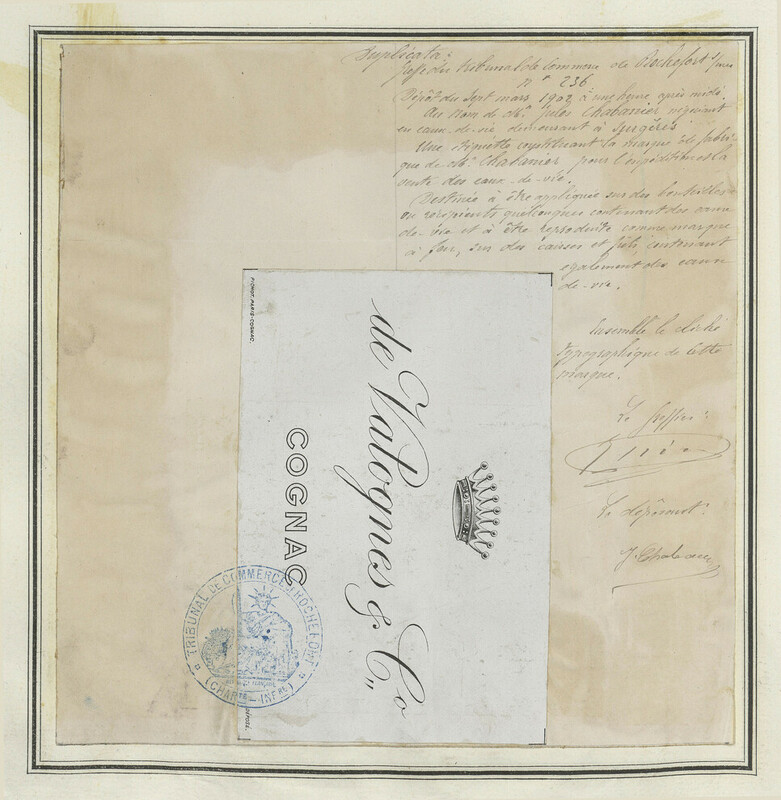 Duplicata:
Greffe du tribunal de Commerce de Rochefort s/mer
n° 236
Dépôt du Sept mars 1902 à une heure après midi.
Au nom de Mr. Jules Chabanier négociant
en eaux-de-vie demeurant à Surgères
Une étiquette constituant la marque de fabri-
que de Mr. Chabanier pour l'expédition et la
vente des eaux-de-vie.
Destinée à être appliquée sur des bouteilles
ou récipients quelconques contenant des eaux
de-vie et à être reproduite comme marque
à feu, sur des caisses et fûts, contenant
également des eaux
de-vie.
Ensemble le cliché
typographique de cette
marque.
Le Greffier:
Le déposant:
J Chabanier
PICHOT. PARIS-COGNAC.
de Valognes & Co
COGNAC
TRIBUNAL DE COMMERCE ROCHEFORT
(CHARTE-INFRE)
DÉPOSÉ.